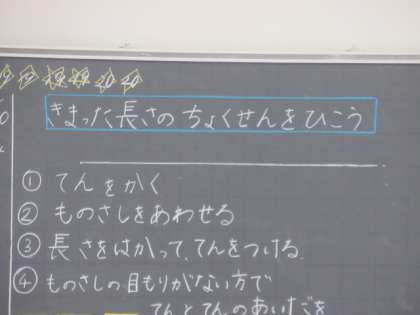 きまった長さのちょくせんをひこう
① てんをかく
② ものさしをあわせる
③ 長さをはかって、てんをつける
④ ものさしの目もりがない方で
てんとてんのあいだを